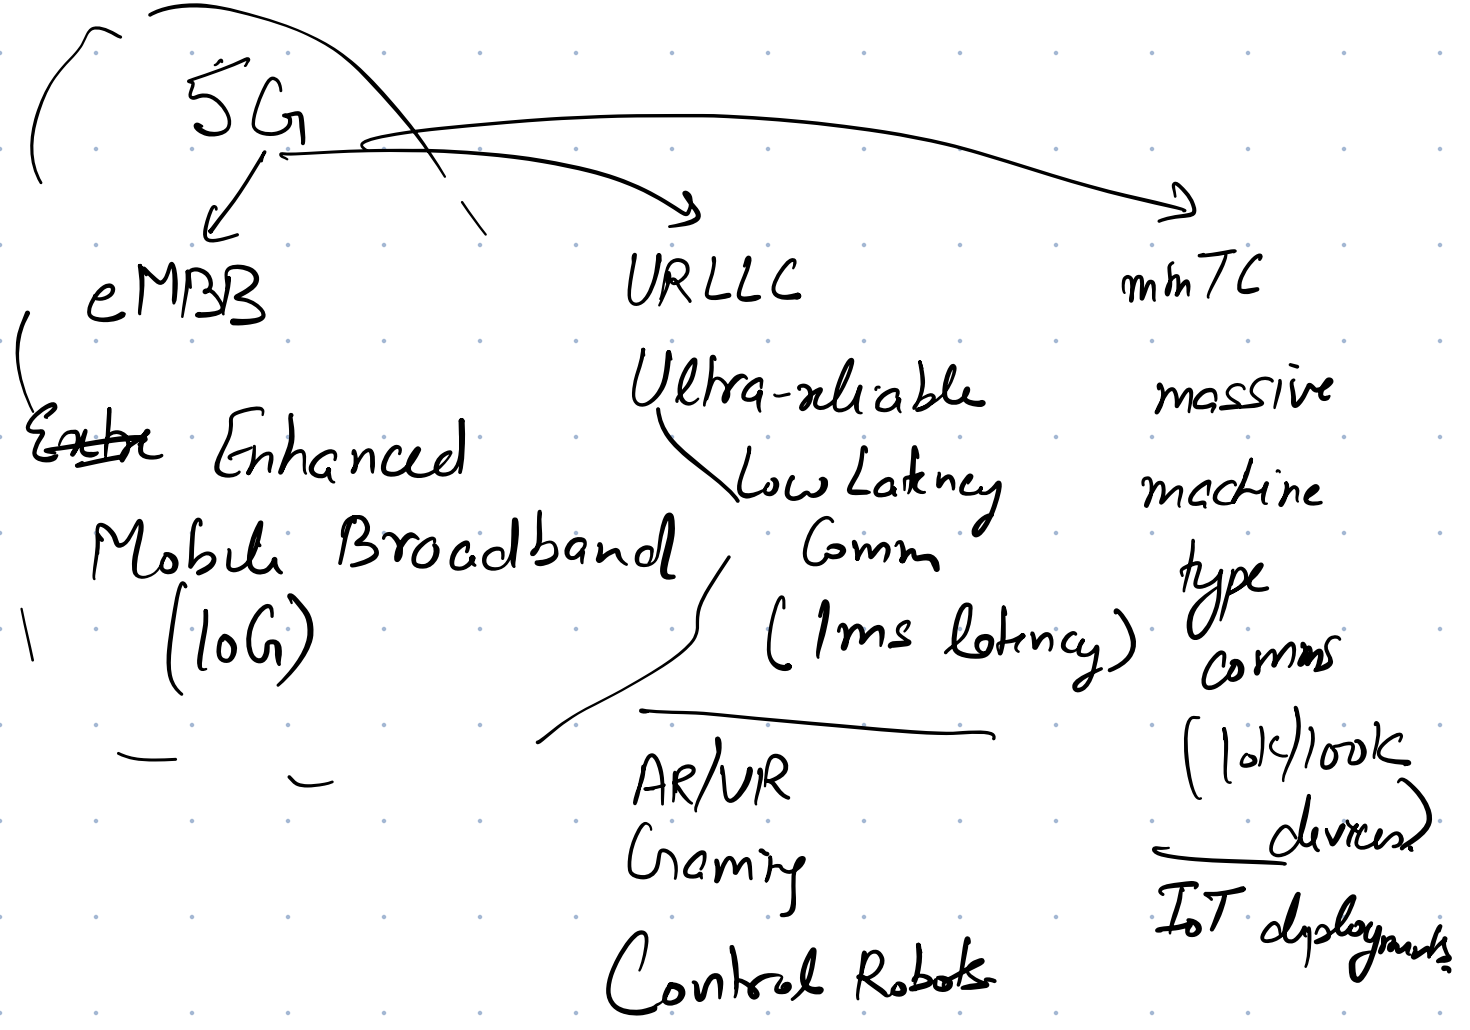 5G
eMBB
Enhanced
Mobile Broadband
(10G)
URLLC
Ultra-reliable
Low Latency
Comm
(1ms latency)
AR/VR
Gaming
Control Robots
mmTC
massive
machine
type
comms
(10k/100k
devices)
IoT deployments